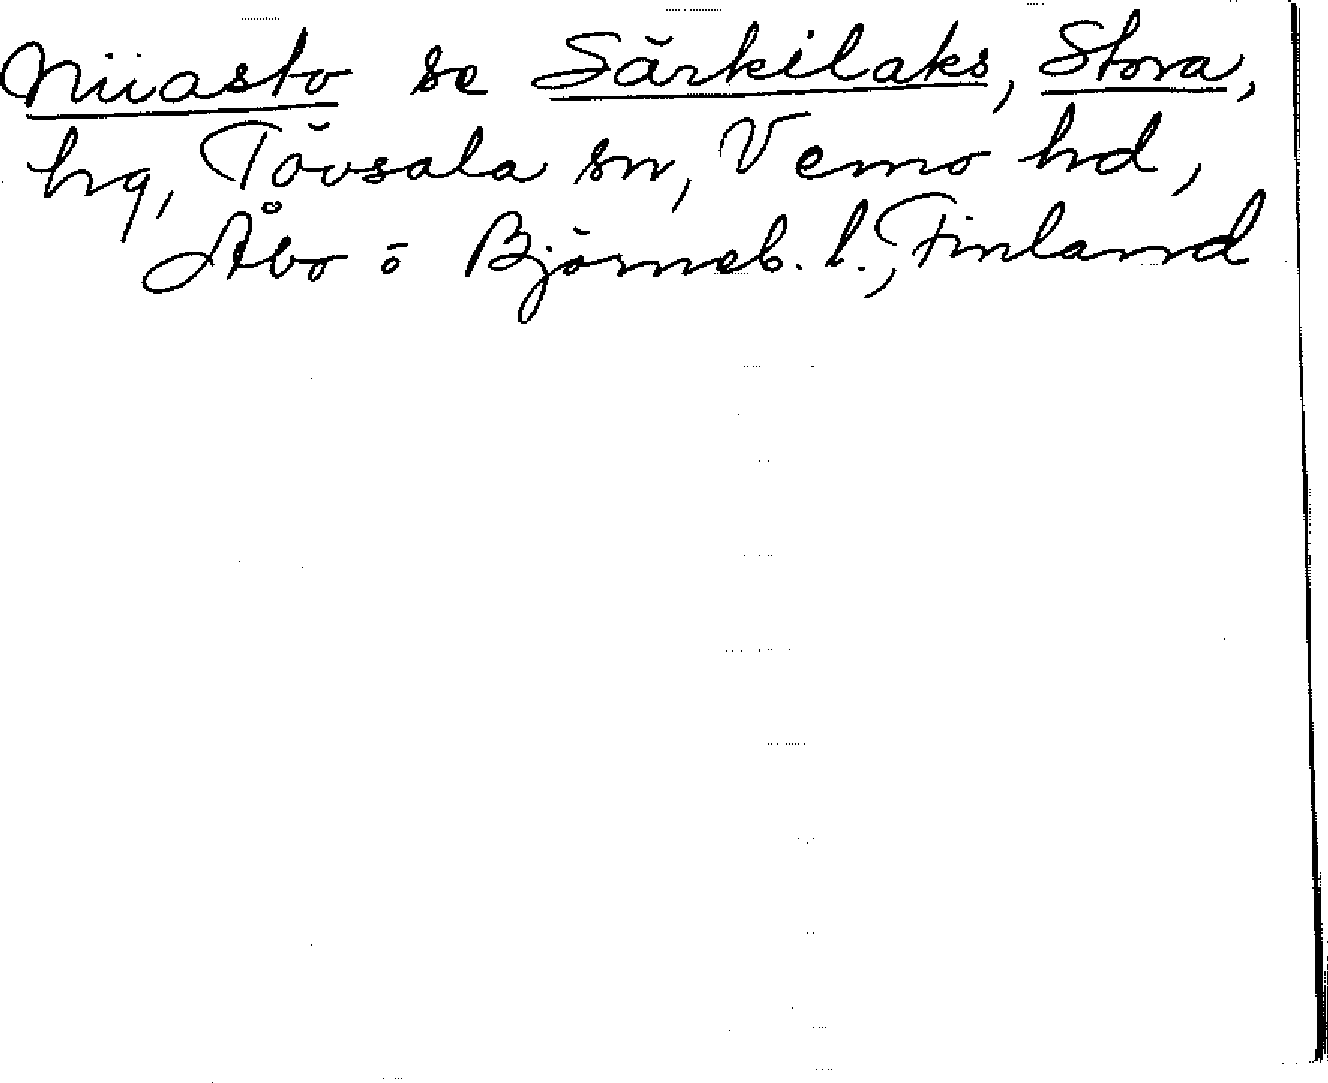 Niiasto se Särkilaks, Stora,
hg, Tövsala sn, Vemo hd,
Åbo ö Björneb. l., Finland